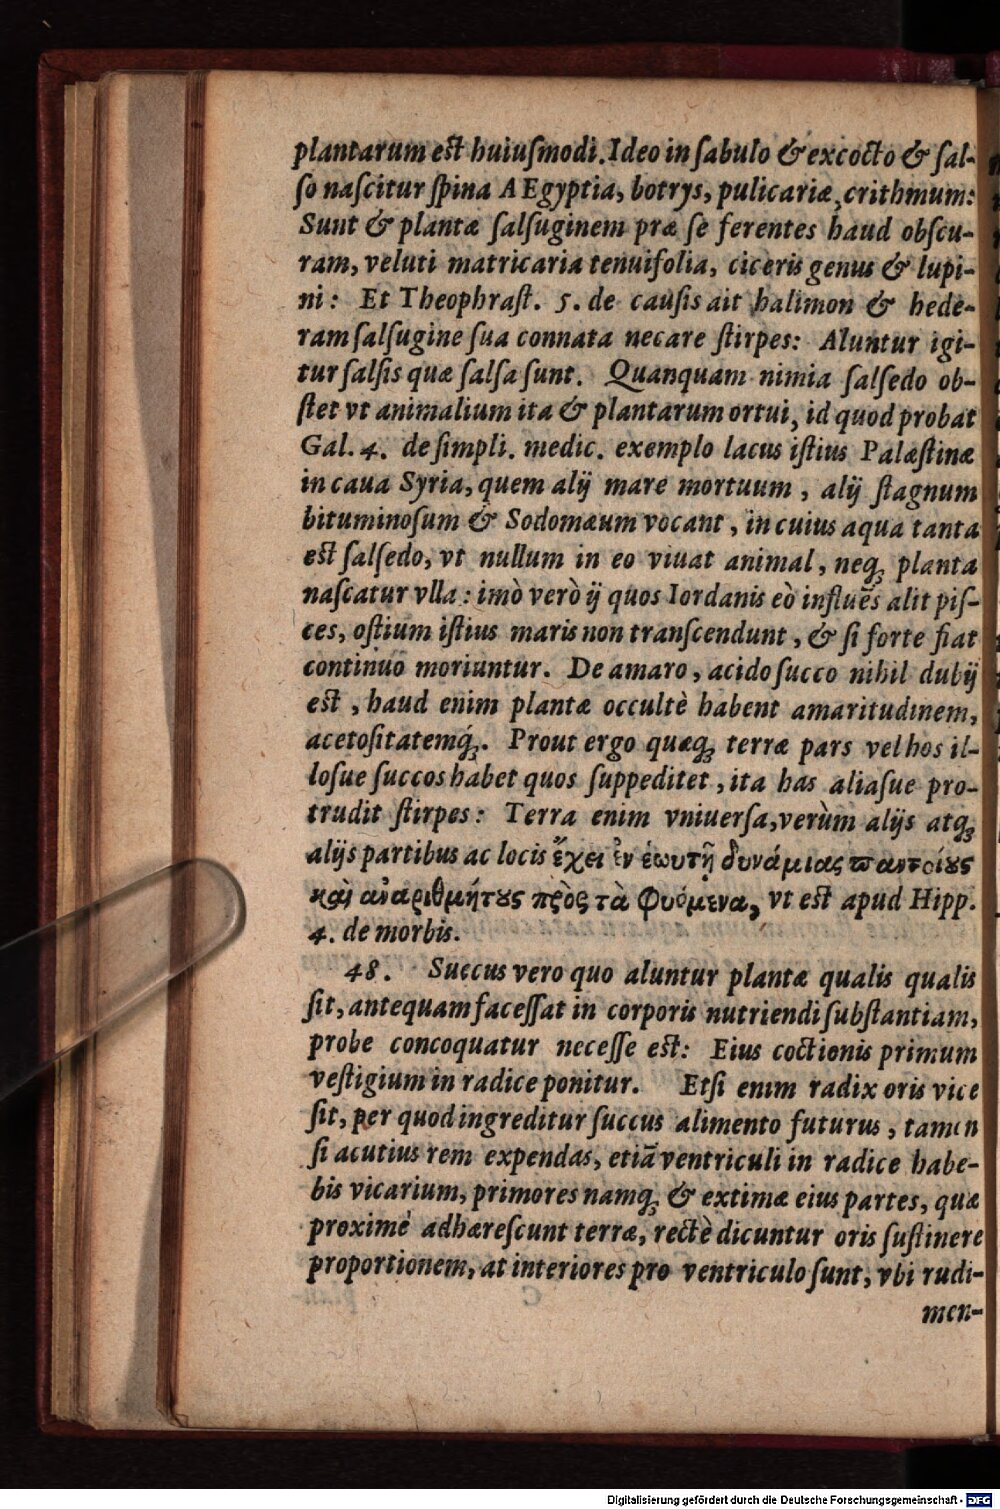 plantarum est huiuſmodi. Ideo in ſabulo & excocto & ſal-
ſo naſcitur ſpina AEgyptia, botrys, pulicariæ, crithmum:
Sunt & plantæ ſalſuginem præ ſe ferentes haud obſcu-
ram, veluti matricaria tenuifolia, ciceris genus & lupi-
ni: Et Theophraſt. 5. de cauſis ait halimon & hede-
ram ſalſugine ſua connata necare ſtirpes: Aluntur igi-
tur ſalſis quæ ſalſa ſunt. Quanquam nimia ſalſedo ob-
ſtet vt animalium ita & plantarum ortui, id quod probat
Gal. 4. de ſimpli. medic. exemplo lacus iſtius Palæſtinæ
in caua Syria, quem alij mare mortuum, alij ſtagnum
bituminoſum & Sodomæum vocant, in cuius aqua tanta
est ſalſedo, vt nullum in eo viuat animal, neq; planta
naſcatur vlla: imò verò ij quos Iordanis eò influẽs alit piſ-
ces, oſtium iſtius maris non tranſcendunt, & ſi forte fiat
continuò moriuntur. De amaro, acido ſucco nihil dubij
est, haud enim plantæ occultè habent amaritudinem,
acetoſitatemq́;. Prout ergo quæq; terræ pars vel hos il-
loſue ſuccos habet quos ſuppeditet, ita has aliaſue pro-
trudit ſtirpes: Terra enim vniuerſa, verùm alijs atq;
alijs partibus ac locis ἔχει ἐν ἑωυτῇ δυνάμιας παντοίους
καὶ ἀναριθμήτους πρὸς τὰ φυόμενα, vt est apud Hipp.
4. de morbis.
48. Succus vero quo aluntur plantæ qualis qualis
ſit, antequam faceſſat in corporis nutriendi ſubſtantiam,
probe concoquatur neceſſe est: Eius coctionis primum
veſtigium in radice ponitur. Etſi enim radix oris vice
ſit, per quod ingreditur ſuccus alimento futurus, tamen
ſi acutius rem expendas, etiã ventriculi in radice habe-
bis vicarium, primores namq; & extimæ eius partes, quæ
proximè adhæreſcunt terræ, rectè dicuntur oris ſuſtinere
proportionem, at interiores pro ventriculo ſunt, vbi rudi-
men-
Digitalisierung gefördert durch die Deutsche Forschungsgemeinschaft - DFG